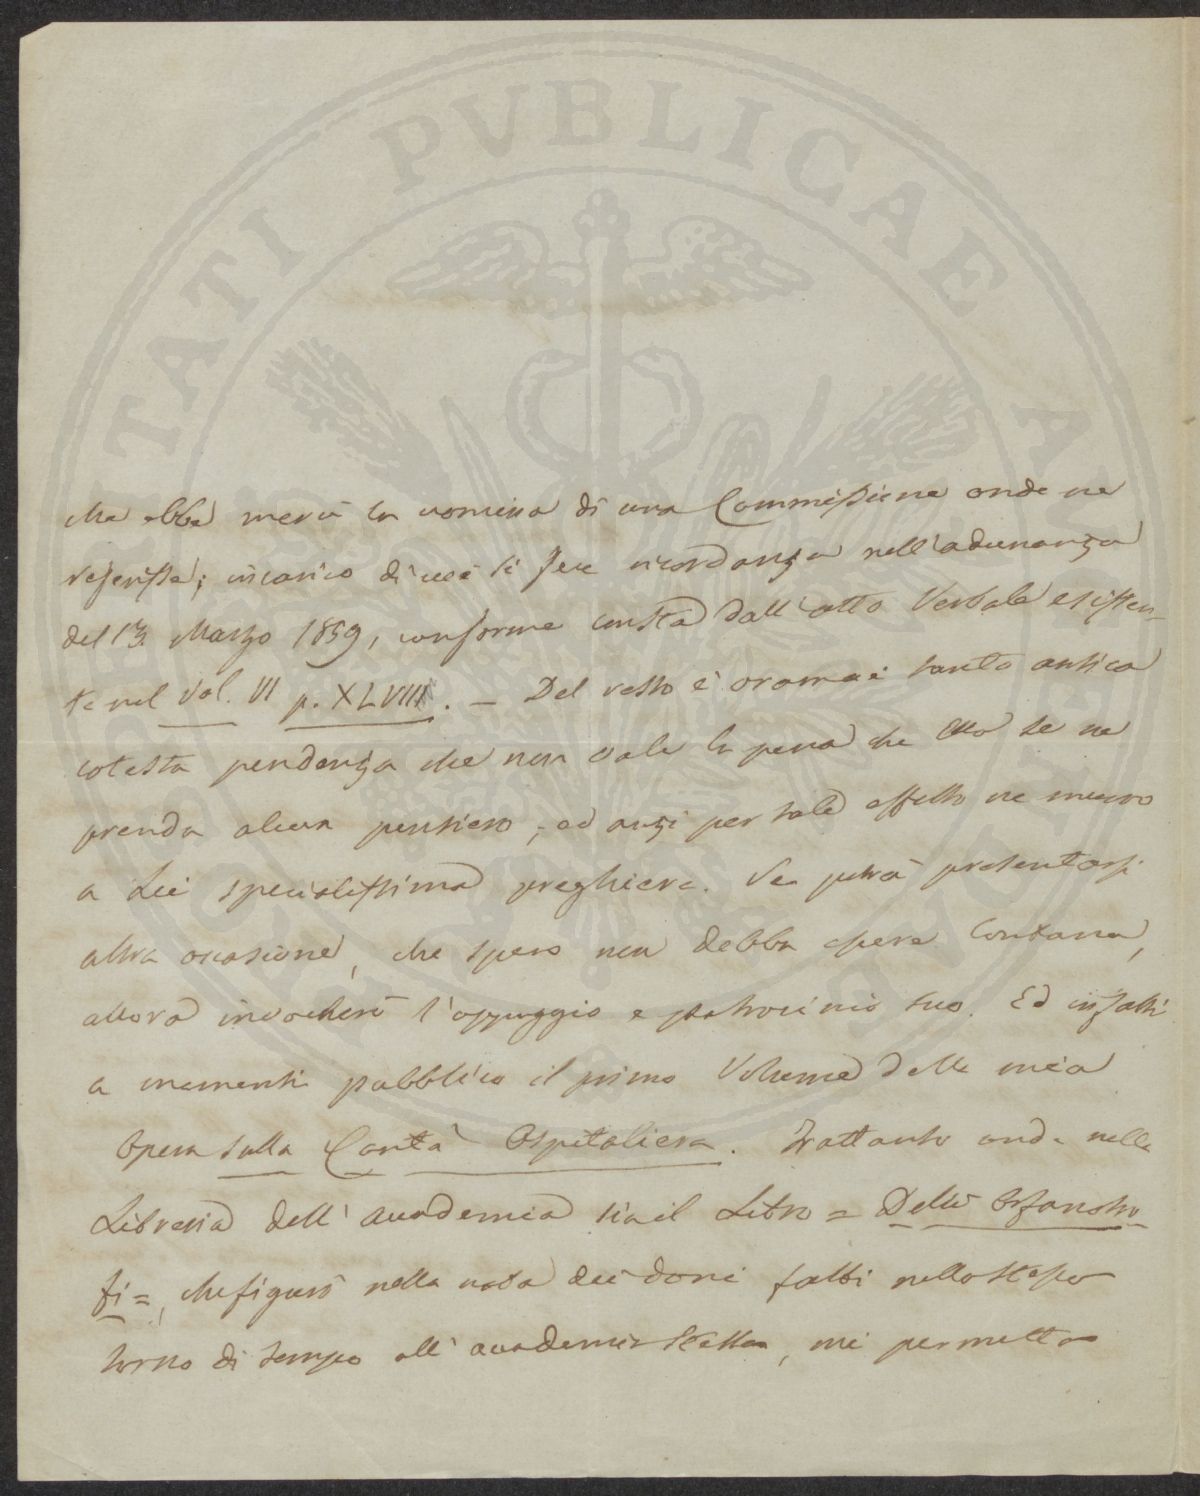 che ebbe mercè la nomina di una Commissione onde ne
referisse; incarico di cui si fece ricordanza nell'adunanza
del 13. Marzo 1859, conforme consta dall'atto Verbale esisten-
te nel Vol. VI p. XLVIII. — Del resto è oramai tanto antica
cotesta pendenza che non vale la pena che Ella se ne
prenda alcun pensiero; ed anzi per tale effetto ne muovo
a Lei specialissima preghiera. Se potrà presentarsi
altra occasione, che spero non debba essere lontana,
allora invocherò l'appoggio e patrocinio suo. Ed infatti
a momenti pubblico il primo Volume della mia
Opera sulla Carità Ospitaliera. Frattanto onde nella
Libreria dell'Accademia sia il Libro = Delli Orfanotro-
fi =, che figurò nella nota dei doni fatti nello stesso
torno di tempo all'accademia stessa, mi permetto